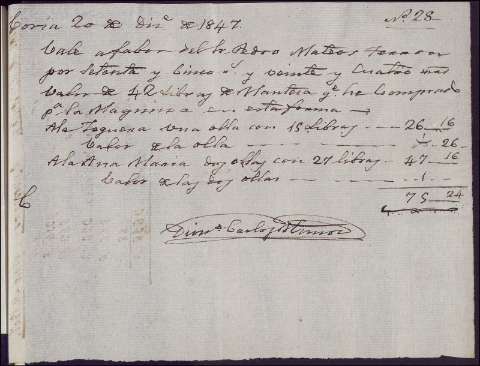 Coria 20 de Dizᵉ de 1847. Nº 28
Vale a fabor del Sr. Pedro Mateos
por Setenta y Cinco rˢ y veinte y Cuatro mrs
Valor de 42 Libras de Manteca qᵉ ha Comprado
pᵃ la Maquina en esta forma
A la Toguera una olla con 15 libras 26 16
Valor de la olla 1 26
A la Ana Maria dos ollas con 27 libras 47 16
Valor de las dos ollas 1
75 24
Carlos